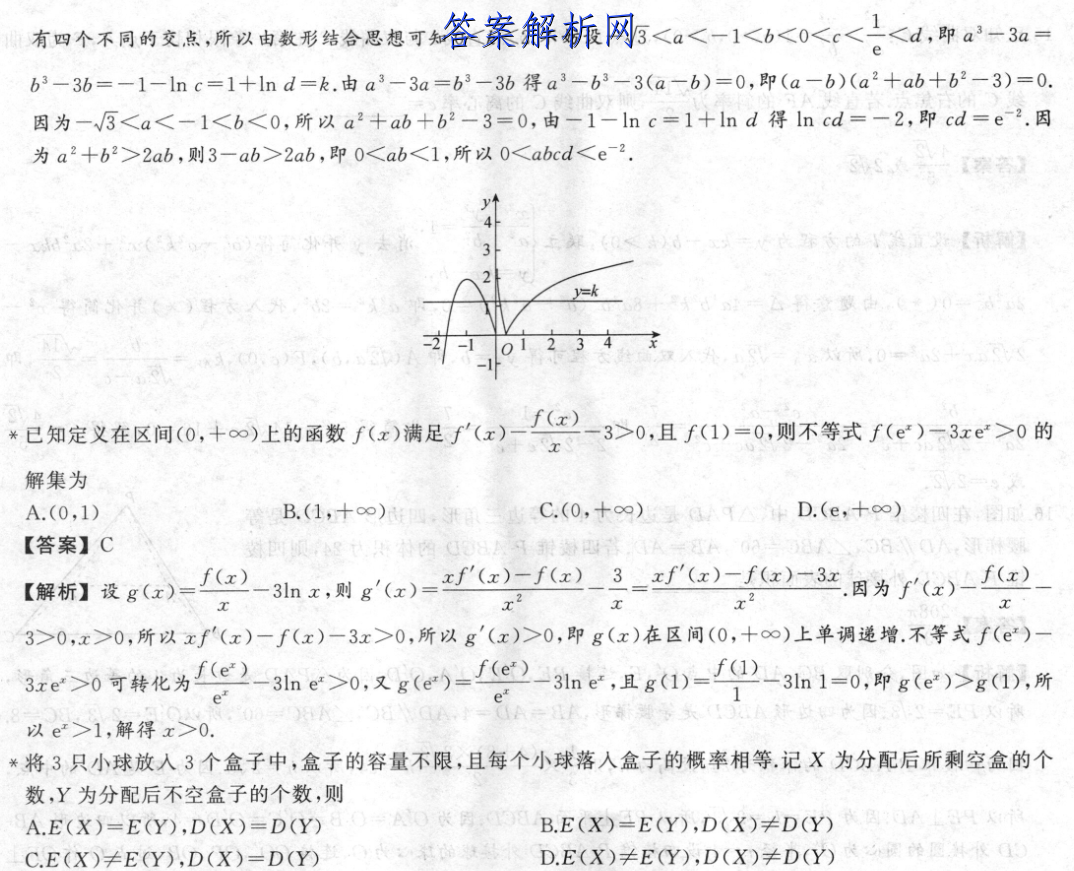 答案解析网
有四个不同的交点,所以由数形结合思想可知 设 √3<a<-1<b<0<c<1/e<d,即 a³-3a=
b³-3b=-1-ln c=1+ln d=k.由 a³-3a=b³-3b 得 a³-b³-3(a-b)=0,即(a-b)(a²+ab+b²-3)=0.
因为-√3<a<-1<b<0,所以 a²+ab+b²-3=0,由-1-ln c=1+ln d 得 ln cd=-2,即 cd=e⁻².因
为 a²+b²>2ab,则3-ab>2ab,即 0<ab<1,所以 0<abcd<e⁻².
y
4
3
2
y=k
1
-2 -1 O 1 2 3 4 x
-1
*已知定义在区间(0,+∞)上的函数 f(x)满足 f′(x)-f(x)/x-3>0,且 f(1)=0,则不等式 f(eˣ)-3xeˣ>0 的
解集为
A.(0,1) B.(1,+∞) C.(0,+∞) D.(e,+∞)
【答案】C
【解析】设 g(x)=f(x)/x-3ln x,则 g′(x)=(xf′(x)-f(x))/x²-3/x=(xf′(x)-f(x)-3x)/x².因为 f′(x)-f(x)/x-
3>0,x>0,所以 xf′(x)-f(x)-3x>0,所以 g′(x)>0,即 g(x)在区间(0,+∞)上单调递增.不等式 f(eˣ)-
3xeˣ>0 可转化为 f(eˣ)/eˣ-3ln eˣ>0,又 g(eˣ)=f(eˣ)/eˣ-3ln eˣ,且 g(1)=f(1)/1-3ln 1=0,即 g(eˣ)>g(1),所
以 eˣ>1,解得 x>0.
*将 3 只小球放入 3 个盒子中,盒子的容量不限,且每个小球落入盒子的概率相等.记 X 为分配后所剩空盒的个
数,Y 为分配后不空盒子的个数,则
A.E(X)=E(Y),D(X)=D(Y) B.E(X)=E(Y),D(X)≠D(Y)
C.E(X)≠E(Y),D(X)=D(Y) D.E(X)≠E(Y),D(X)≠D(Y)